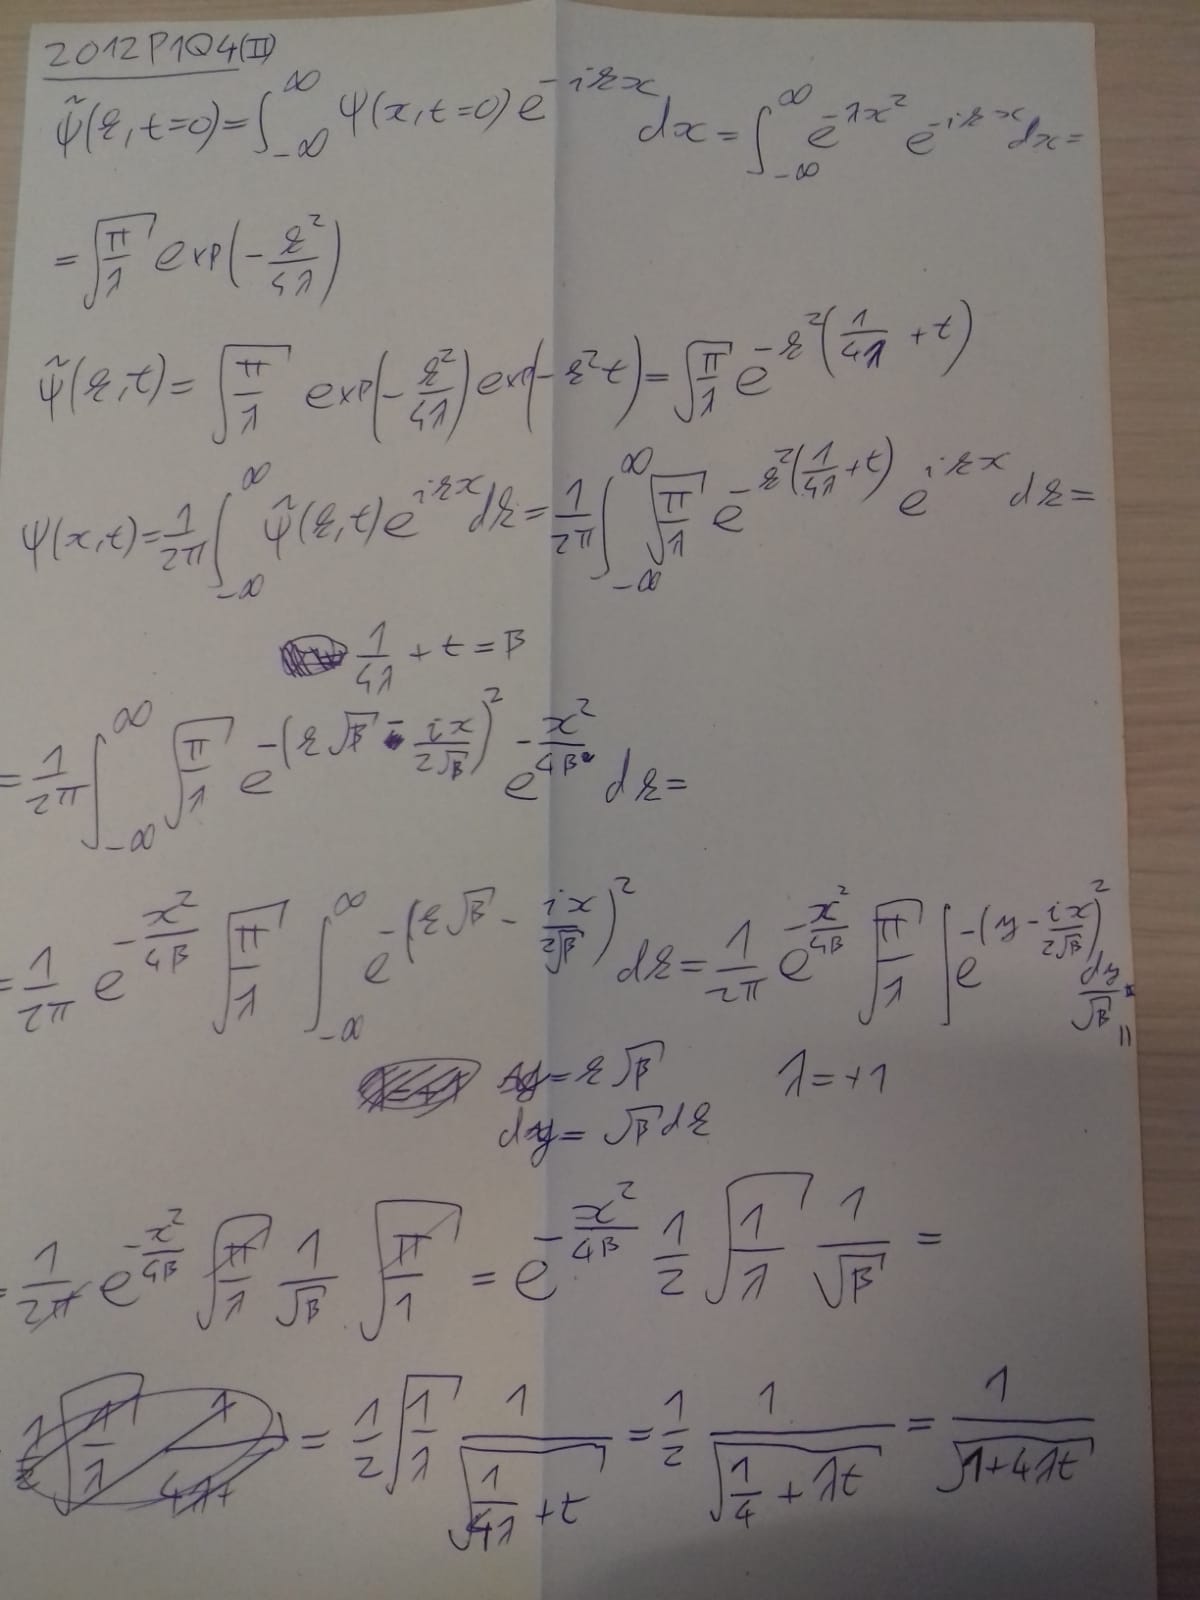 2012P1Q4(II)
ψ̃(k,t=0)=∫_{-∞}^{∞} ψ(x,t=0) e^{-ikx} dx = ∫_{-∞}^{∞} e^{-λx²} e^{-ikx} dx =
= √(π/λ) exp(-k²/4λ)
ψ̃(k,t)= √(π/λ) exp(-k²/4λ) exp(-k²t) = √(π/λ) e^{-k²(1/4λ + t)}
ψ(x,t)= 1/2π ∫_{-∞}^{∞} ψ̃(k,t) e^{ikx} dk = 1/2π ∫_{-∞}^{∞} √(π/λ) e^{-k²(1/4λ + t)} e^{ikx} dk =
1/4λ + t = β
= 1/2π ∫_{-∞}^{∞} √(π/λ) e^{-(k√β - ix/2√β)²} e^{-x²/4β} dk =
= 1/2π e^{-x²/4β} √(π/λ) ∫_{-∞}^{∞} e^{-(k√β - ix/2√β)²} dk = 1/2π e^{-x²/4β} √(π/λ) ∫ e^{-(y - ix/2√β)²} dy/√β =
y = k√β λ=+1
dy = √β dk
= 1/2π e^{-x²/4β} √(π/λ) 1/√β √(π/1) = e^{-x²/4β} 1/2 √(1/λ) 1/√β =
= 1/2 √(1/λ) 1/√(1/4λ + t) = 1/2 1/√(1/4 + λt) = 1/√(1+4λt)